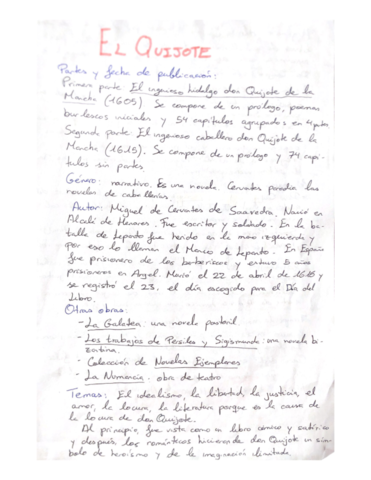 EL QUIJOTE
Partes y fecha de publicación:
Primera parte El ingenioso hidalgo don Quijote de la
Mancha (1605) Se compone de un prólogo, poemas
burlescos iniciales y 54 capítulos agrupados en 4 partes
Segunda parte El ingenioso caballero don Quijote de la
Mancha (1615). Se compone de un prólogo y 74 capí-
tulos sin partes.
Género: narrativo. Es una novela. Cervantes parodia las
novelas de caballerías.
Autor: Miguel de Cervantes de Saavedra. Nació en
Alcalá de Henares. Fue escritor y soldado. En la ba-
talla de Lepanto fue herido en la mano izquierda y
por eso lo llaman el Manco de Lepanto. En España
fue prisionero de los berberiscos y estuvo 5 años
prisionero en Argel. Murió el 22 de abril de 1616 y
se registró el 23. el día escogido para el Día del
Libro.
Otras obras:
- La Galatea. una novela pastoril.
- Los trabajos de Persiles y Sigismunda: una novela bi-
zantina.
- Colección de Novelas Ejemplares
- La Numancia. obra de teatro
Temas: El idealismo, la libertad, la justicia, el
amor, la locura, la literatura porque es la causa de
la locura de don Quijote.
Al principio, fue vista como un libro cómico y satírico
y después los románticos hicieron de don Quijote un sím-
bolo de heroísmo y de la imaginación ilimitada.